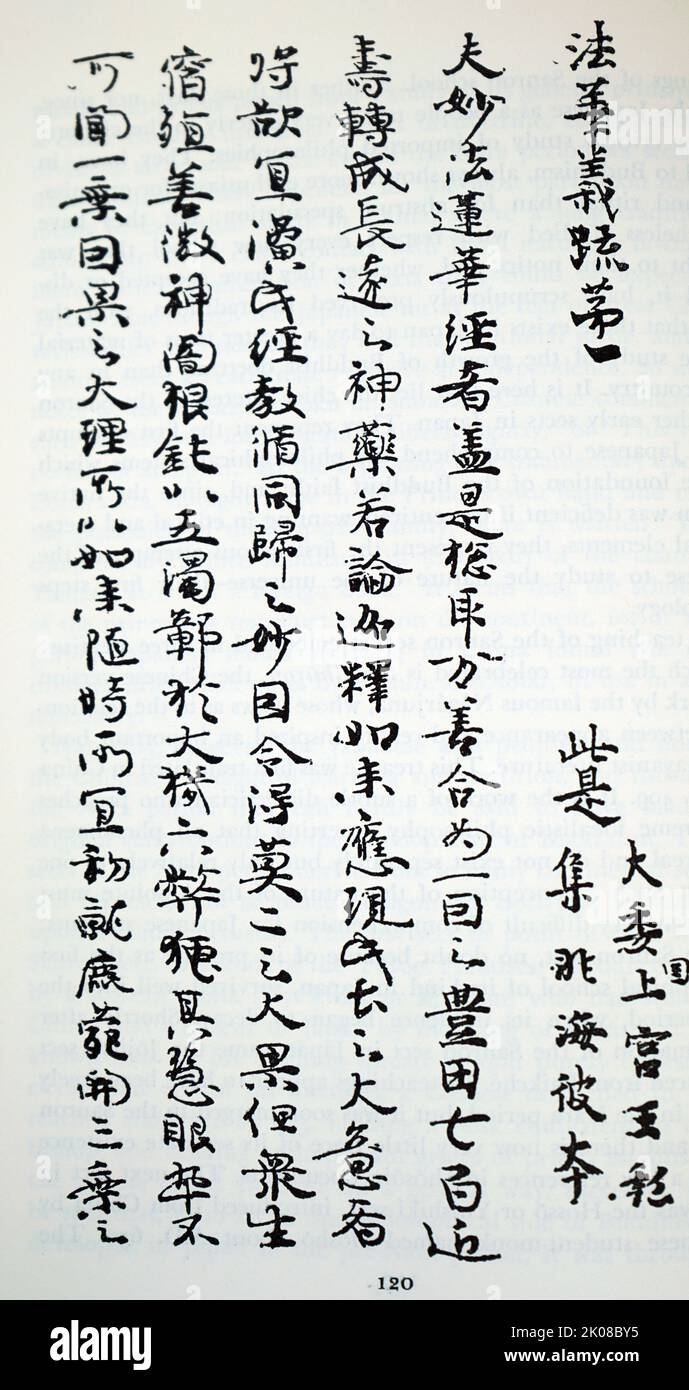 法華義疏第一
此是
大委国上宮王私
集非海彼本
夫妙法蓮華經者盖是惣取万善合為一因之豊田七百近
壽轉成長遠之神藥若論迦釋如来應現此土之大意者
将欲宜演此經教脩同歸之妙因令得莫二之大果但衆生
宿殖善微神闇根鈍以五濁鄣於大機六弊掩其慧眼卒不
可聞一乗因果之大理所以如来随時所宜初就鹿苑開三乗之
120
alamy
Image ID: 2K08BY5
www.alamy.com